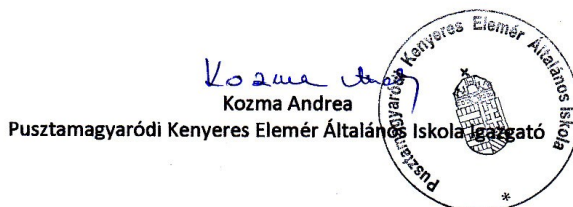 Kozma Andrea
Kozma Andrea
Pusztamagyaródi Kenyeres Elemér Általános Iskola Igazgató
Pusztamagyaródi Kenyeres Elemér Általános Iskola
*